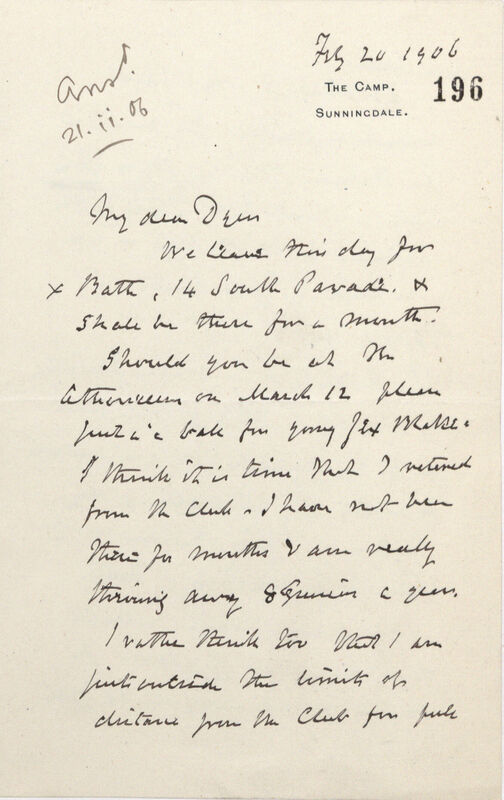 Feb 20 1906
Ansd.
21.ii.06
THE CAMP.
SUNNINGDALE.
196
My dear Dyer
We leave this day for
x Bath, 14 South Parade. &
shall be there for a month.
Should you be at the
Athenaeum on March 12 please
put in a ball for young Jex Blake.
I think it is time that I retired
from the Club. I have not been
there for months & am really
throwing away 8 Guineas a year.
I rather think too that I am
just outside the limits of
distance from the Club for full